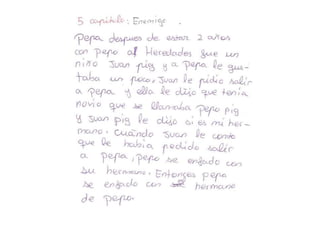 5 capitulo: Enemigo.
Pepa despues de estar 2 años
con pepo al Heredades fue un
niño Juan pig y a Pepa le gus-
taba un poco, Juan le pidio salir
a pepa y ella le dijo que tenia
novio que se llamaba Pepo pig
y Juan pig le dijo si es mi her-
mano. Cuando Juan le conto
que le habia pedido salir
a pepa, pepo se enfado con
su hermano. Entonces pepo
se enfado con hermano
de pepo.